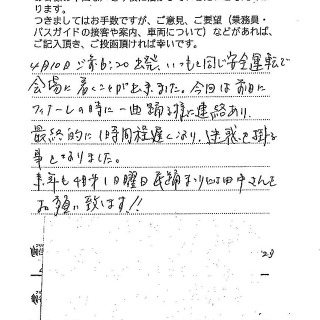 ります。
つきましてはお手数ですが、ご意見、ご要望（乗務員・
バスガイドの接客や案内、車両について）などがあれば、
ご記入頂き、ご投函頂ければ幸いです。
4月10日 ご前6:20 出発、いつも同じ安全運転で
会場に着くことが出来ました。今日は前日に
フィナーレの時に一曲踊る様に連絡あり、
最終的に1時間程遅くなり、迷惑を掛る
事となりました。
来年も4月第1日曜日 民踊まつり 田中さんを
お願い致します!!
23